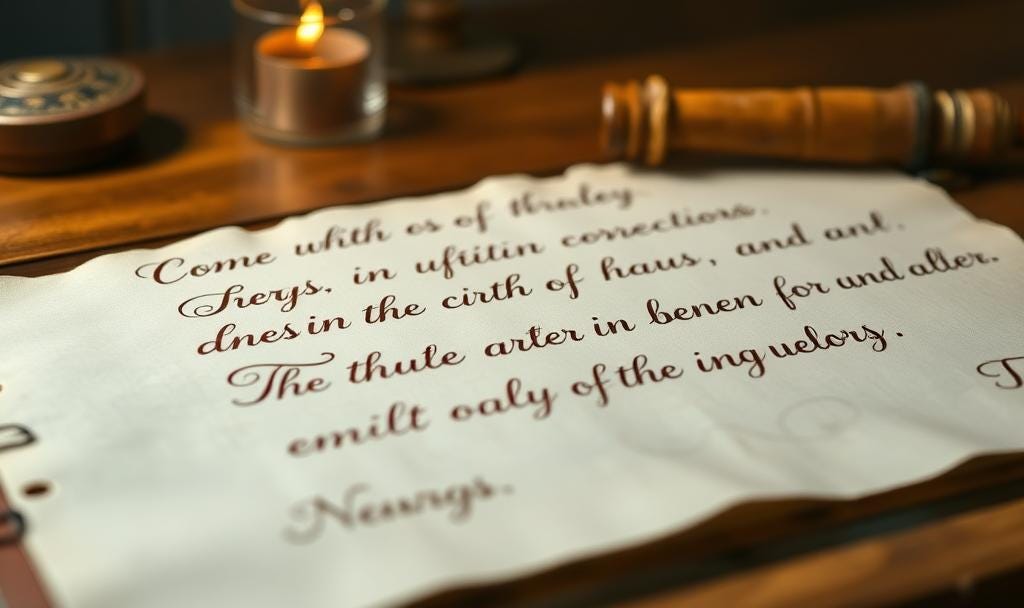 Come whith os of thraley
Sherys, in uftitin conrections.
dnes in the cirth of haus, and ant.
The thute arter in benen for und aller.
emilt oaly of the ing uelorys.
Neurgs.